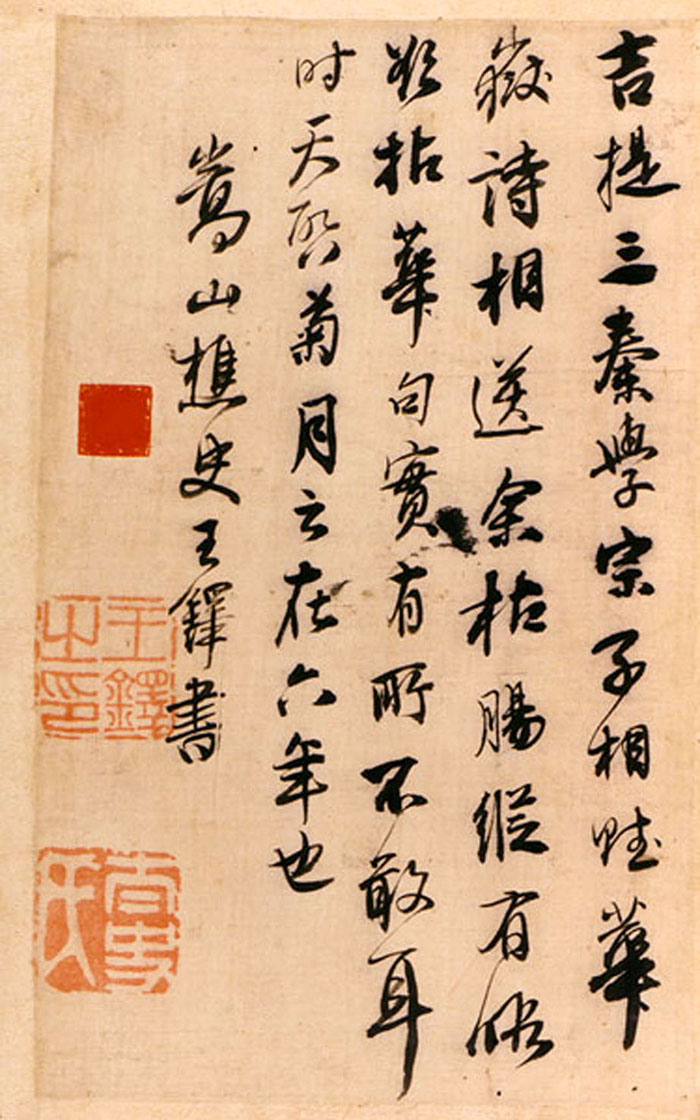 吉提三秦學宗子相賦華
嶽詩相送余枯腸縱有
欲拈華句實有所不敢耳
时天啓菊月云在六年也
嵩山樵史王鐸書
王鐸之印